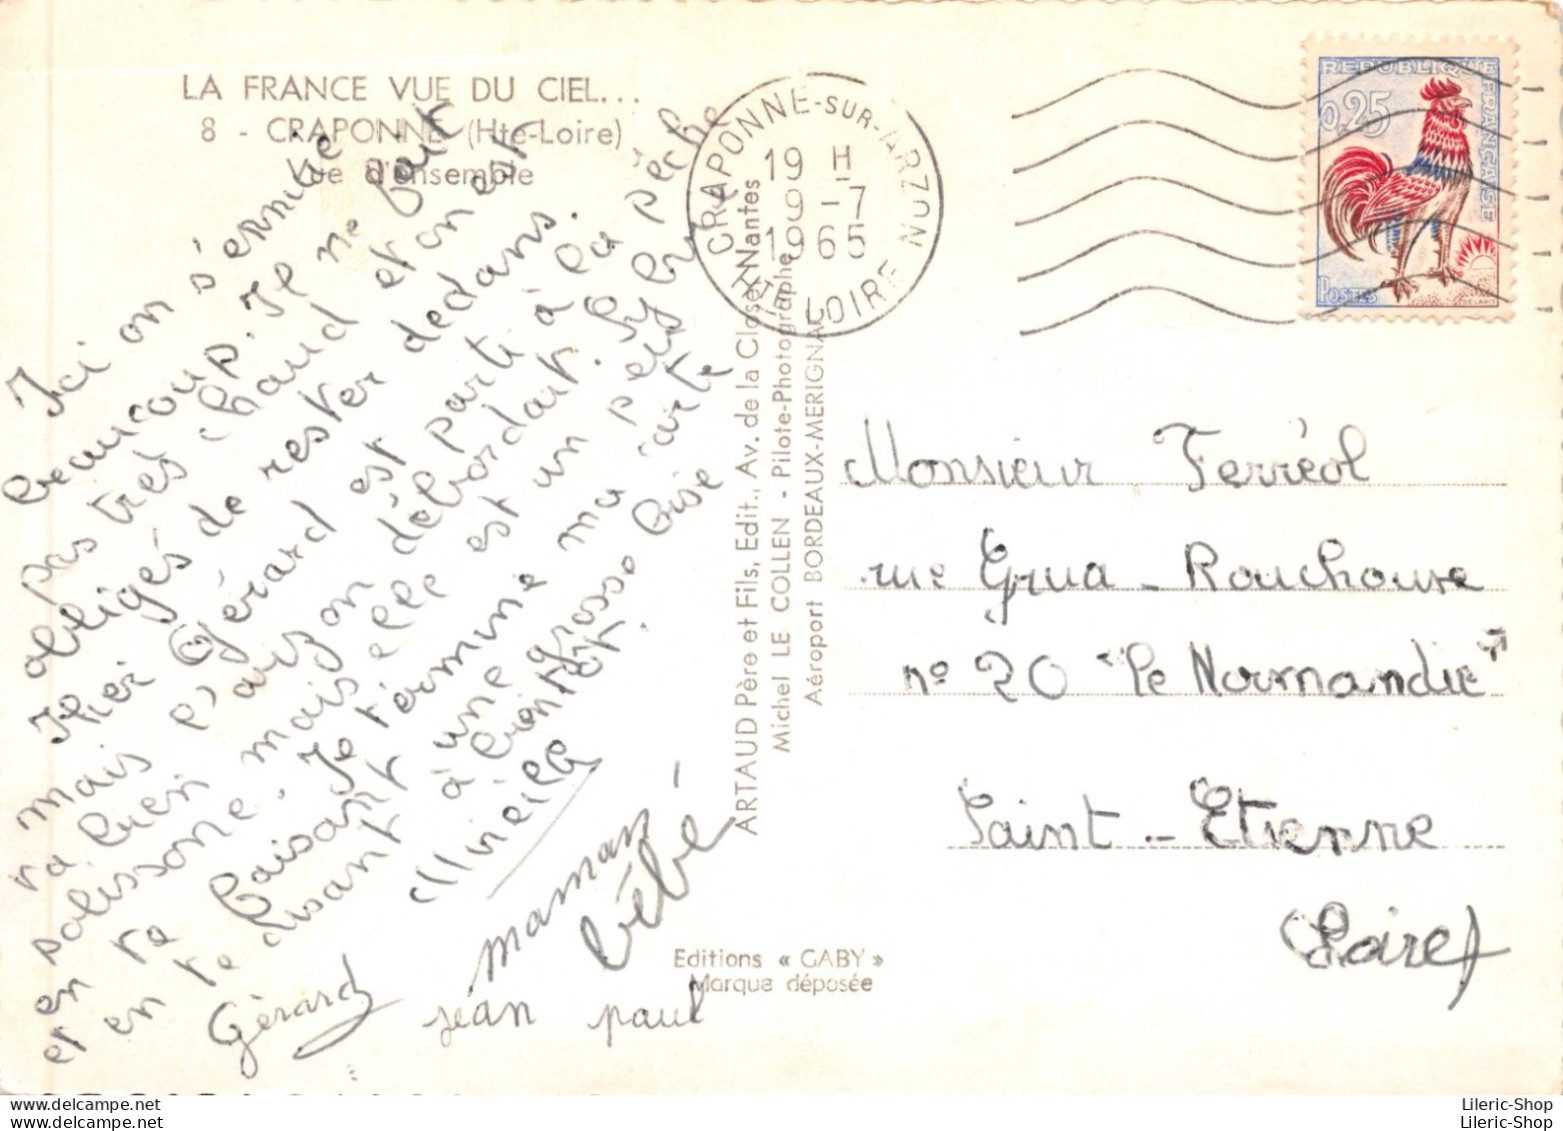 LA FRANCE VUE DU CIEL...
8 - CRAPONNE (Hte-Loire)
Vue d'ensemble
Ici on s'ennuie
beaucoup. Il ne fait
pas très chaud et on est
obligés de rester dedans.
Hier Gérard est parti à la pêche
mais l'arzon débordait. Sylvie
va bien mais elle est un peu
polissonne. Je termine ma carte
en te faisant une grosse bise
et en te disant à bientôt.
Mireille
maman
bébé
Gérard
jean paul
CRAPONNE-SUR-ARZON
19 H
9-7
1965
Hte LOIRE
REPUBLIQUE FRANÇAISE
0,25
POSTES
ARTAUD Père et Fils, Edit., Av. de la Close, Nantes
Michel LE COLLEN - Pilote-Photographe
Aéroport BORDEAUX-MERIGNAC
Monsieur Ferréol
rue Grua-Rouchouse
n° 20 "Le Normandie"
Saint-Etienne
Loire
Editions « GABY »
Marque déposée
Lileric-Shop
Lileric-Shop
Lileric-Shop
Lileric-Shop